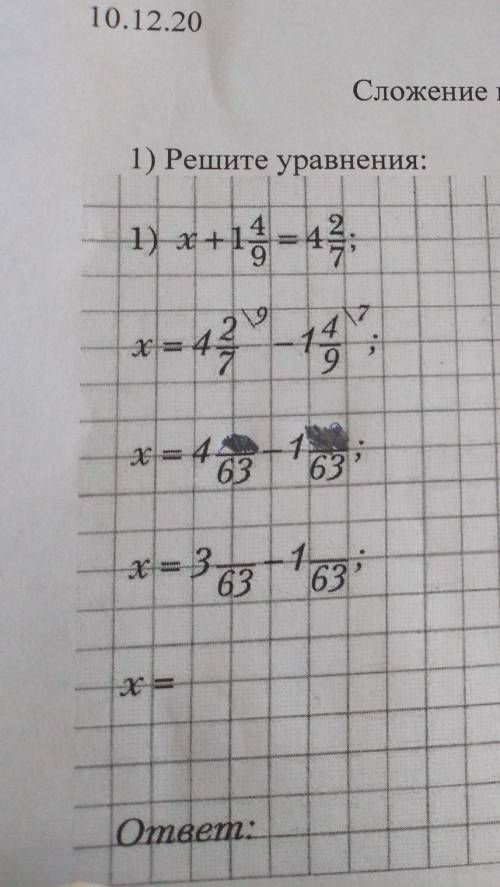 10.12.20
Сложение
1) Решите уравнения:
1) x + 1 4/9 = 4 2/7;
x = 4 2/7 \9 − 1 4/9 \7 ;
x = 4 /63 − 1 /63 ;
x = 3 /63 − 1 /63 ;
x =
Ответ: